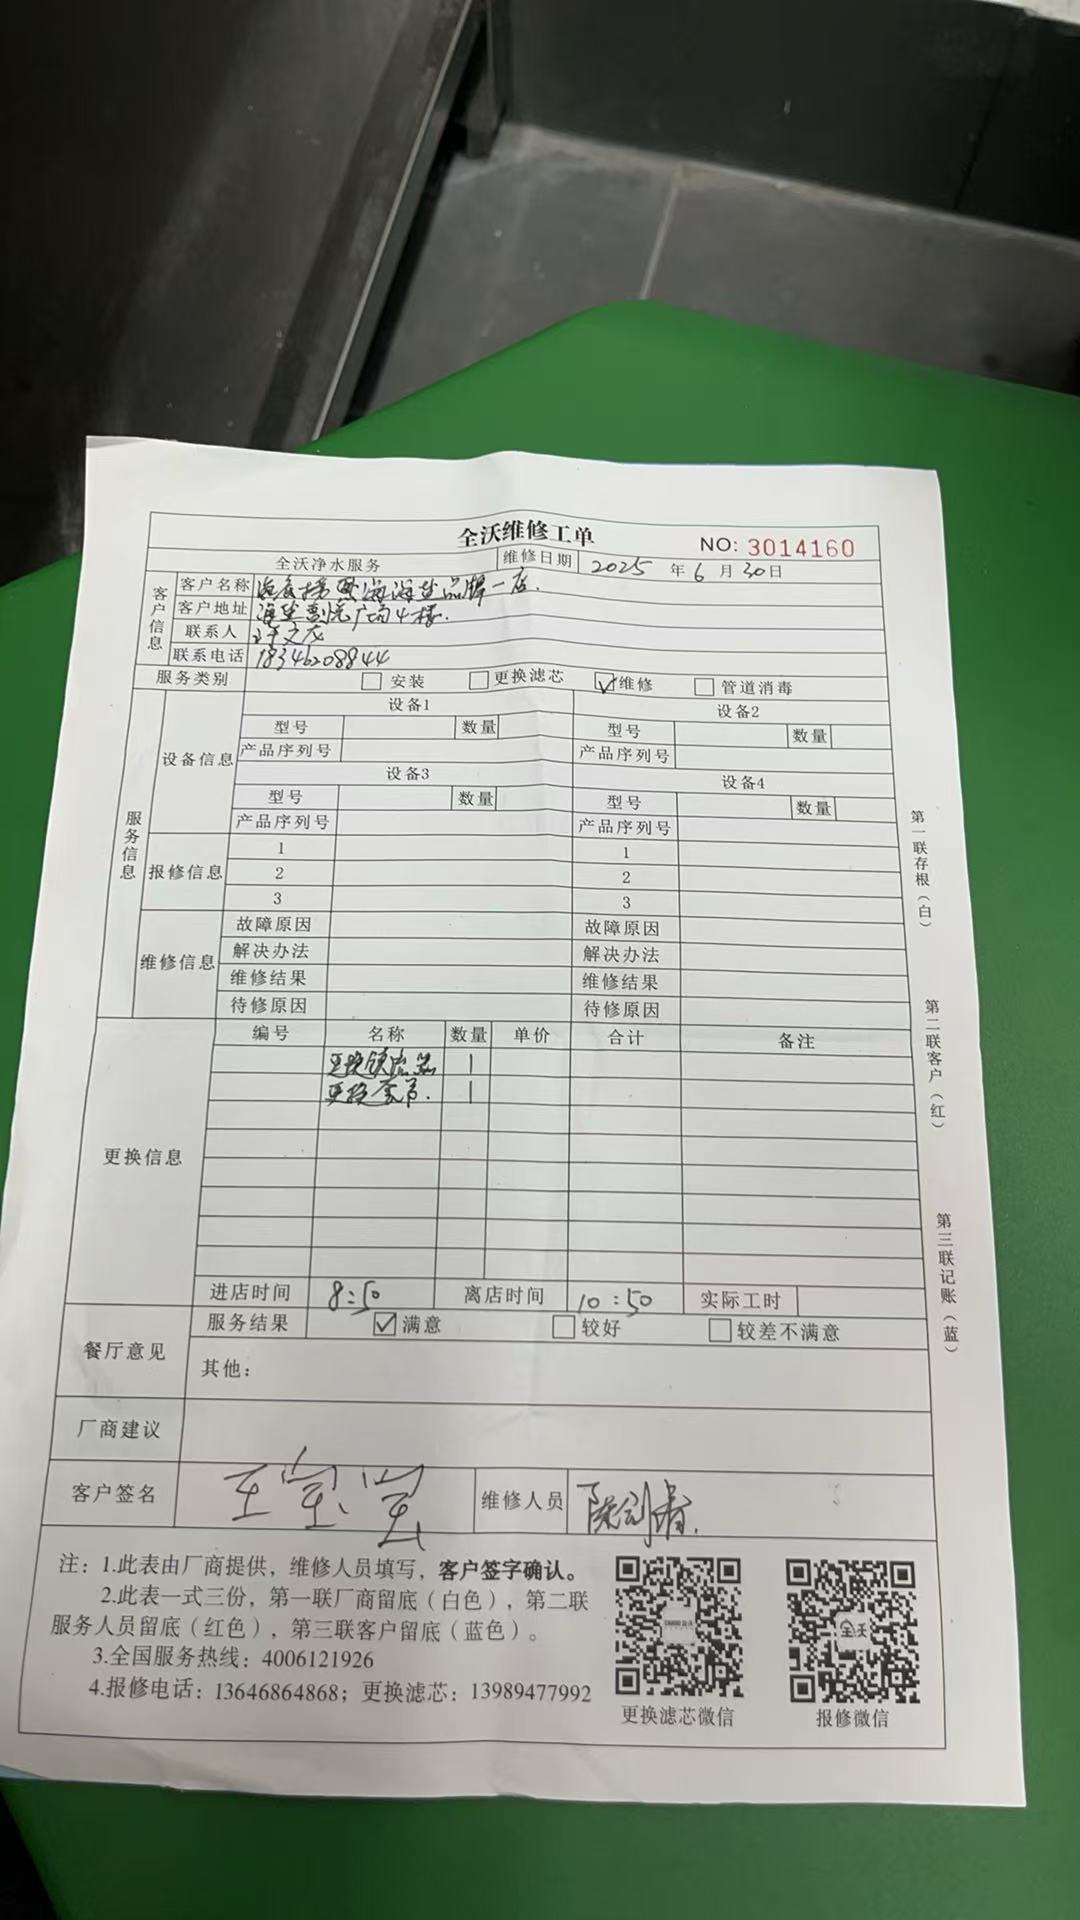 全沃维修工单
NO: 3014160
全沃净水服务 维修日期 2025 年 6 月 30 日
客户信息
客户名称 海底捞 海海盐品牌一店.
客户地址 海盐 广场4楼.
联系人 文
联系电话 18346208844
服务类别 安装 更换滤芯 维修 管道消毒
服务信息
设备信息
设备1 设备2
型号 数量 型号 数量
产品序列号 产品序列号
设备3 设备4
型号 数量 型号 数量
产品序列号 产品序列号
报修信息
1 1
2 2
3 3
维修信息
故障原因 故障原因
解决办法 解决办法
维修结果 维修结果
待修原因 待修原因
更换信息
编号 名称 数量 单价 合计 备注
更换 1
更换 1
进店时间 8:50 离店时间 10:50 实际工时
餐厅意见
服务结果 满意 较好 较差不满意
其他：
厂商建议
客户签名 王 维修人员 陈
注：1.此表由厂商提供，维修人员填写，客户签字确认。
2.此表一式三份，第一联厂商留底（白色），第二联
服务人员留底（红色），第三联客户留底（蓝色）。
3.全国服务热线：4006121926
4.报修电话：13646864868；更换滤芯：13989477992
更换滤芯微信
全沃
报修微信
第一联存根（白）
第二联客户（红）
第三联记账（蓝）